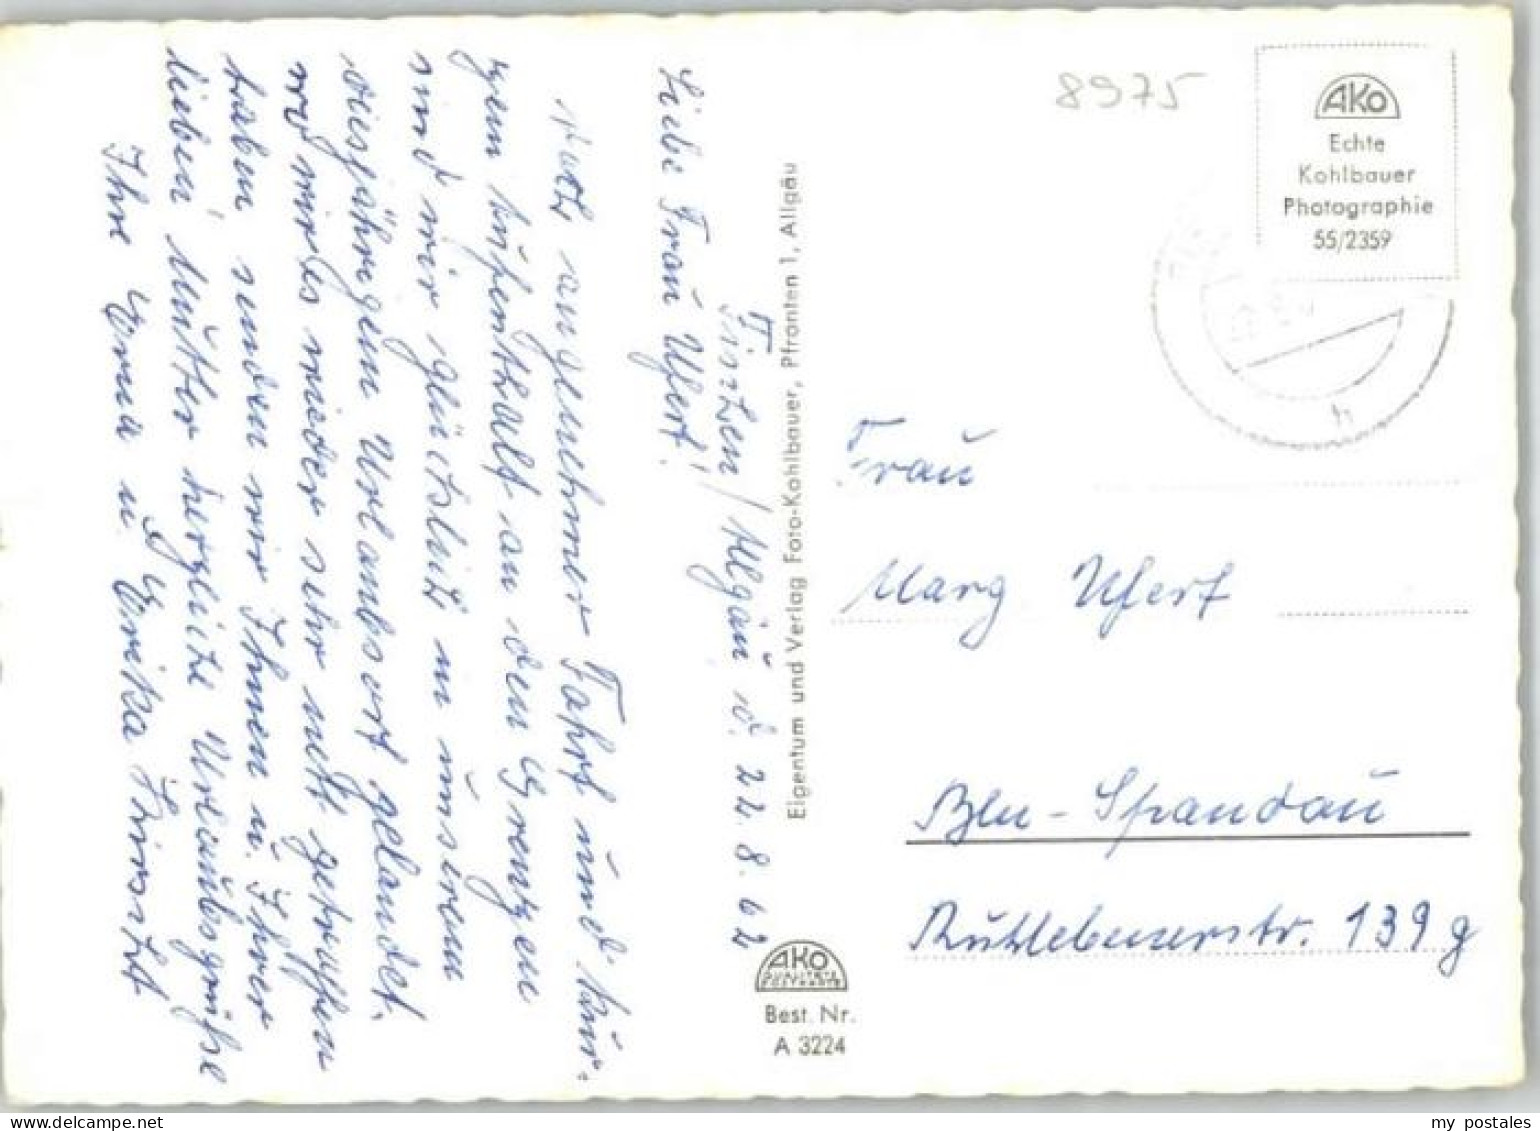 Tinzen/Allgäu d. 22.8.62
Liebe Frau Ufert!
Nach angenehmer Fahrt und kur-
zem Aufenthalt an den Grenzen
sind wir glücklich in unserem
diesjährigen Urlaubsort gelandet.
wo wir es wieder sehr nett getroffen
haben, senden wir Ihnen u. Ihrer
lieben Mutter herzliche Urlaubsgrüße
Ihre Erna u. Erika
Eigentum und Verlag Foto-Kohlbauer, Pfronten 1, Allgäu
AKO
QUALITÄTS
POSTKARTE
Best. Nr.
A 3224
8975
AKO
Echte
Kohlbauer
Photographie
55/2359
Frau
Marg Ufert
Bln-Spandau
Ruhlebenerstr. 139 g
my postales